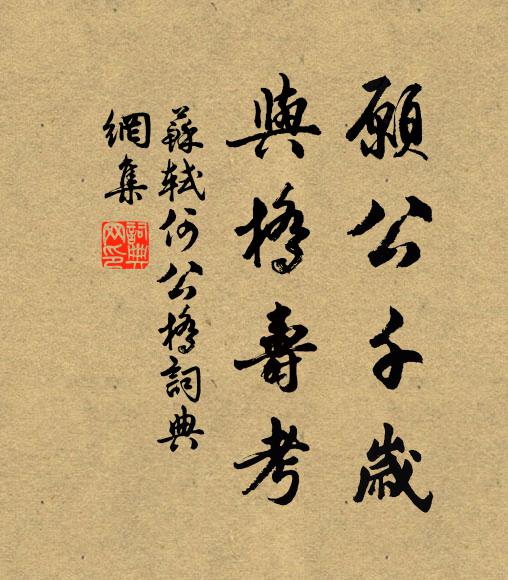 願公千歲
與橋壽考
蘇軾何公橋詞典
網集
詞典
网印